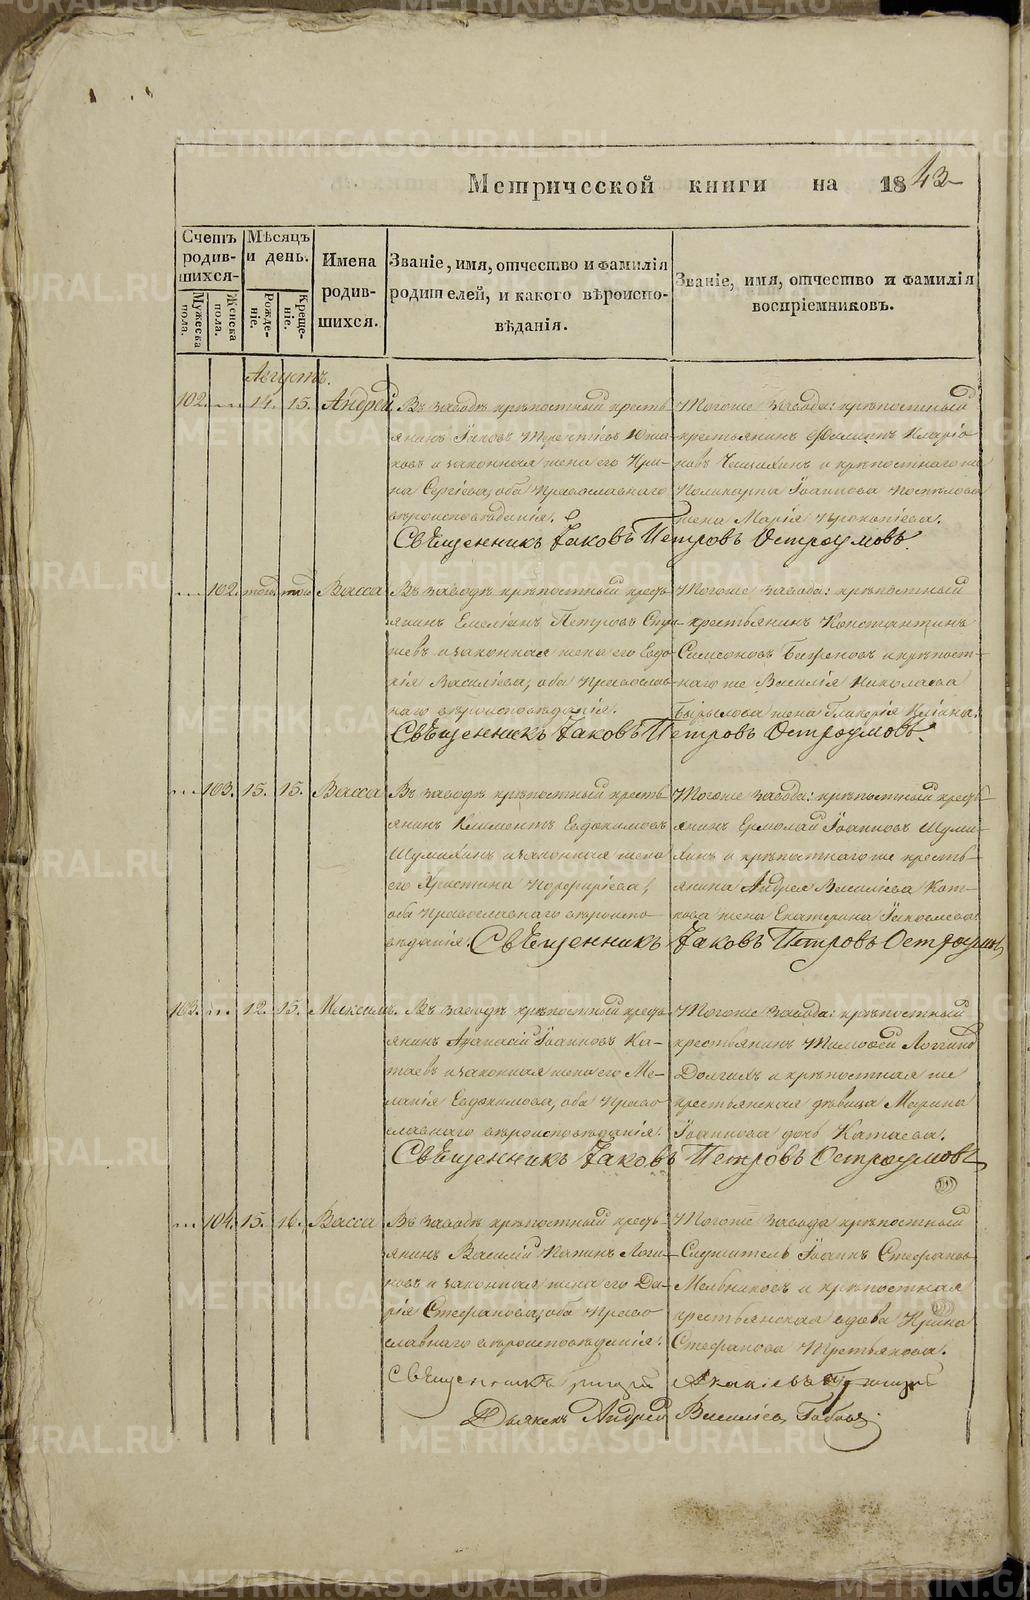 Метрической книги на 1843
Счетъ родив-шихся.
Мѣсяцъ и день.
Имена родив-шихся.
Званіе, имя, отчество и фамилія родителей, и какого вѣроиспо-вѣданія.
Званіе, имя, отчество и фамилія воспріемниковъ.
Мужеска пола.
Женска пола.
Рожде-ніе.
Креще-ніе.
Августъ.
102. 14. 15. Андрей
Въ заводѣ крѣпостный кресть-
янинъ Іаковъ Терентіевъ
ковъ и законная жена его Ири-
на Сергіева, оба Православнаго
вѣроисповѣданія.
Тогоже завода: крѣпостный
крестьянинъ Филиппъ Иларіо-
новъ и крѣпостнаго же
Поликарпа Іоаннова Поспѣлова
жена Марія Прокопіева.
Священникъ Іаковъ Петровъ Остроумовъ.
102. тогож тогож Васса
Въ заводѣ крѣпостный кресть-
янинъ Емеліанъ Петровъ
шевъ и законная жена его Евдо-
кія Василіева, оба Православ-
наго вѣроисповѣданія.
Тогоже завода: крѣпостный
крестьянинъ Константинъ
Симеоновъ Баженовъ и крѣпост-
наго же Василія Николаева
жена Гликерія
Священникъ Іаковъ Петровъ Остроумовъ.
103. 15. 15. Васса
Въ заводѣ крѣпостный кресть-
янинъ Климентъ Евдокимовъ
Шумихинъ и законная жена
его Христина Порфиріева,
оба Православнаго вѣроиспо-
вѣданія.
Тогоже завода: крѣпостный кресть-
янинъ Ермолай Іоанновъ Шуми-
хинъ и крѣпостнаго же кресть-
янина Андрея Василіева Кот-
кова жена Екатерина Іаковлева.
Священникъ Іаковъ Петровъ Остроумовъ
103. 12. 15. Максимъ.
Въ заводѣ крѣпостный кресть-
янинъ Аѳанасій Іоанновъ Ка-
таевъ и законная жена его Ме-
ланія Евдокимова, оба Право-
славнаго вѣроисповѣданія.
Тогоже завода: крѣпостный
крестьянинъ Тимоѳей Логгиновъ
Долгихъ и крѣпостная же
крестьянская дѣвица Марина
Іоаннова дочь Катаева.
Священникъ Іаковъ Петровъ Остроумовъ
104. 15. 16. Васса
Въ заводѣ крѣпостный кресть-
янинъ Василій Логи-
новъ и законная жена его Да-
рія Стефанова, оба Право-
славнаго вѣроисповѣданія.
Тогоже завода крѣпостный
Служитель Іоаннъ Стефановъ
Мельниковъ и крѣпостная
крестьянская вдова Ирина
Стефанова Третьякова.
Священникъ Григорій
Дьяконъ Андрей Василіевъ
METRIKI.GASO-URAL.RU